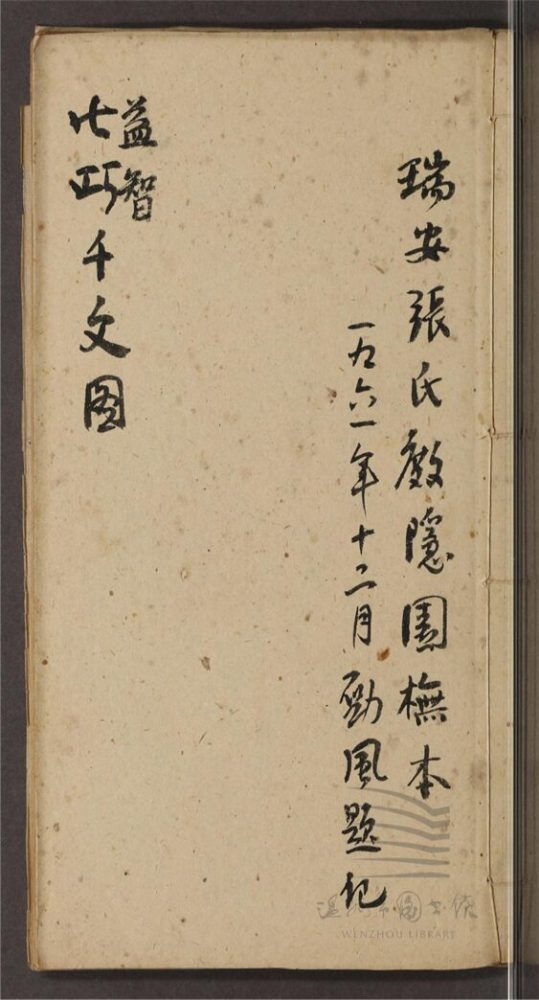 瑞安張氏廏隱園橅本
一九六一年十二月勁風題記
益智
七巧千文圖
温州市图书馆
WENZHOU LIBRARY